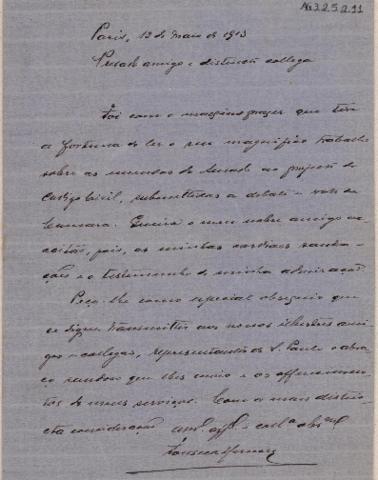 Nº 3.2.5.2.11
Paris, 12 de Maio de 1913
Presado amigo e distincto collega
Foi com o maximo prazer que tive
a fortuna de ler o seu magnifico trabalho
sobre as emendas do Senado ao projecto do
Codigo Civil, submettidas a debate e voto da
Camara. Queira o meu nobre amigo
acceitar, pois, as minhas cordiaes sauda-
ções e o testemunho de minha admiração.
Peço-lhe como especial obsequio que
se digne transmittir aos nossos illustres ami-
gos e collegas, representantes de S. Paulo o abra-
ço que lhes envio e os offerecimen-
tos de meus serviços. Com a mais distin-
cta consideração